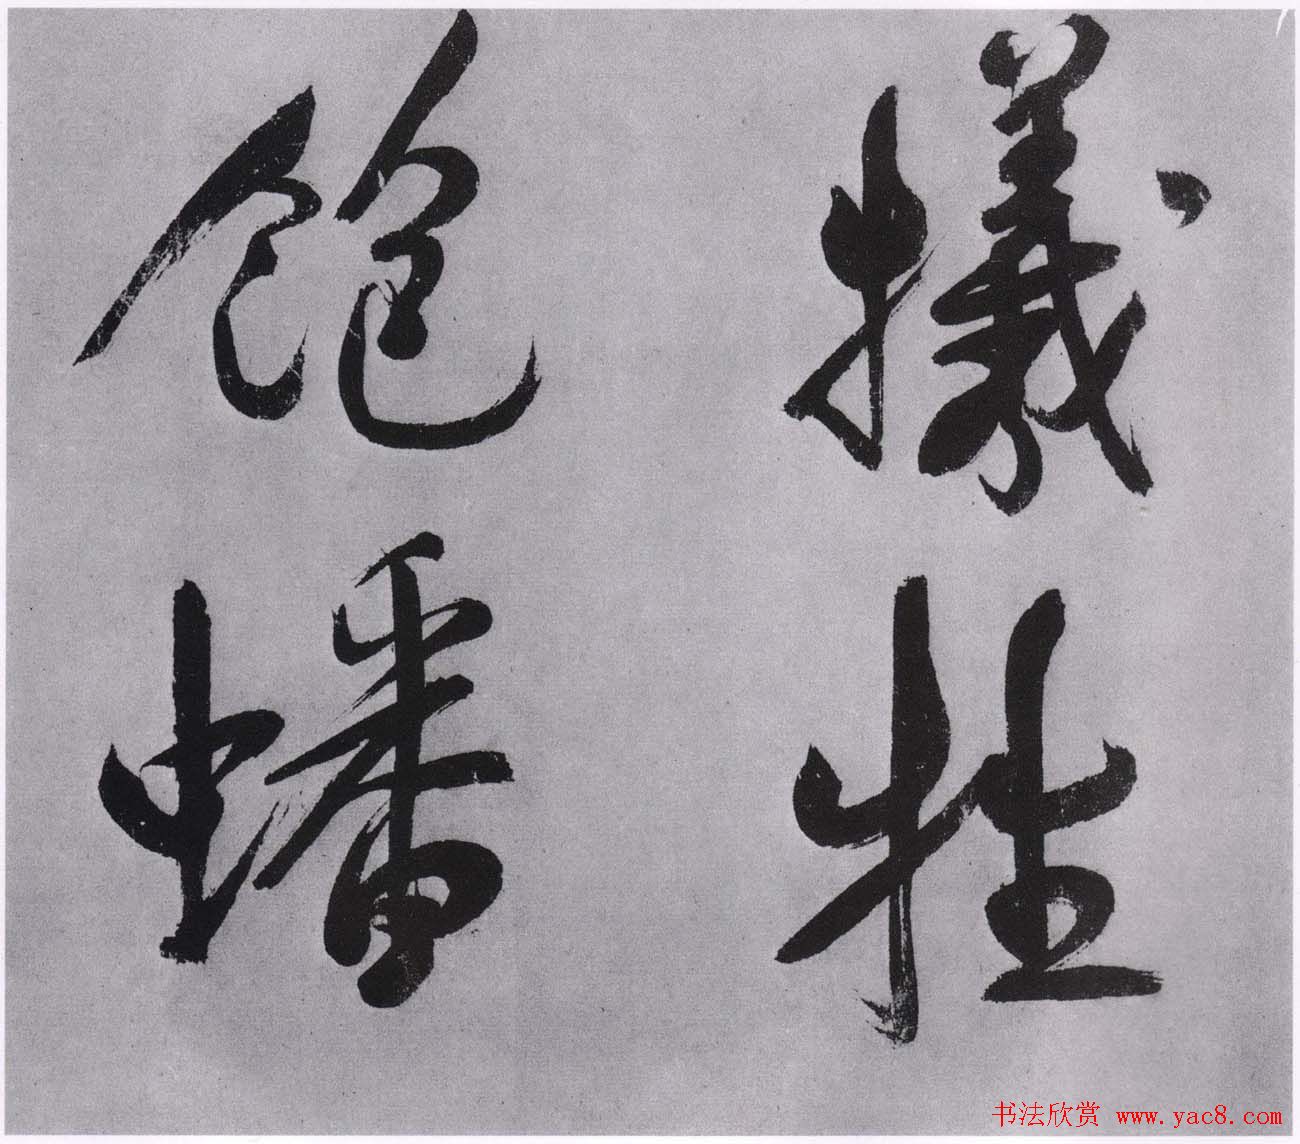 犧牲
飽蟠
书法欣赏 www.yac8.com